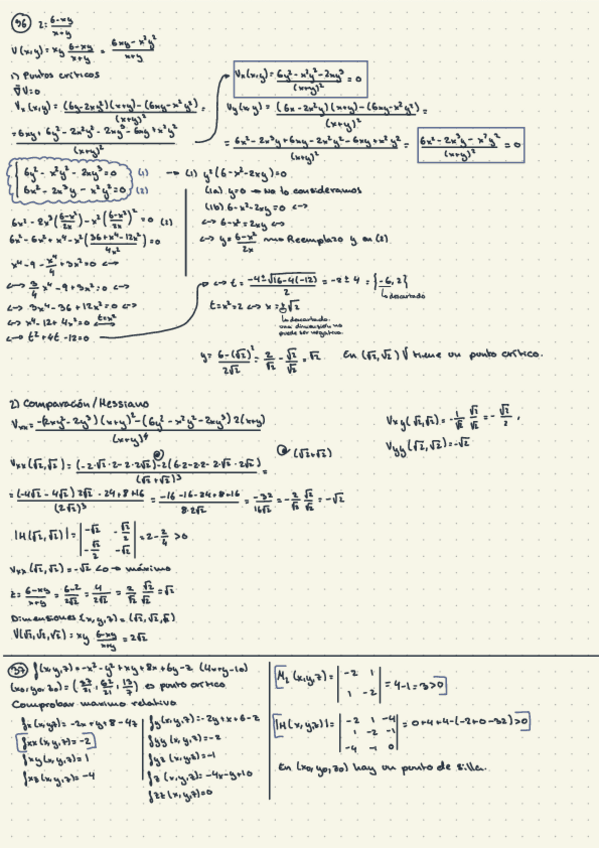 96 z: \frac{6-xy}{x+y}
V(x,y) = xy \frac{6-xy}{x+y} = \frac{6xy-x²y²}{x+y}
1) Puntos críticos
∇V=0
Vx(x,y) = \frac{(6y-2xy²)(x+y)-(6xy-x²y²)}{(x+y)²} =
= \frac{6xy+6y²-2x²y²-2xy³-6xy+x²y²}{(x+y)²}
Vx(x,y) = \frac{6y²-x²y²-2xy³}{(x+y)²} = 0
Vy(x,y) = \frac{(6x-2x²y)(x+y)-(6xy-x²y²)}{(x+y)²} =
= \frac{6x²-2x³y+6xy-2x²y²-6xy+x²y²}{(x+y)²} = \frac{6x²-2x³y-x²y²}{(x+y)²} = 0
6y²-x²y²-2xy³=0 (1)
6x²-2x³y-x²y²=0 (2)
→ (1) y²(6-x²-2xy)=0
(1a) y=0 → No lo consideramos
(1b) 6-x²-2xy=0 <->
<-> 6-x²=2xy <->
<-> y=\frac{6-x²}{2x} Reemplazo y en (2)
6x²-2x³(\frac{6-x²}{2x})-x²(\frac{6-x²}{2x})²=0 (2)
6x²-6x²+x⁴-x²(\frac{36+x⁴-12x²}{4x²})=0
x⁴-9-\frac{x⁴}{4}+3x²=0 <->
<-> \frac{3}{4}x⁴-9+3x²=0 <->
<-> 3x⁴-36+12x²=0 <->
<-> x⁴-12+4x²=0 <-> t=x²
<-> t²+4t-12=0
<-> t=\frac{-4±\sqrt{16-4(-12)}}{2} = -2±4 = {-6,2}
descartado
t=x²=2 <-> x=±√2
descartado.
una dimensión no
puede ser negativa.
y=\frac{6-(√2)²}{2√2}=\frac{2}{√2}·\frac{√2}{√2}=√2 En (√2,√2) V tiene un punto crítico.
2) Comparación/Hessiano
Vxx=\frac{(-2xy²-2y³)(x+y)²-(6y²-x²y²-2xy³)2(x+y)}{(x+y)⁴}
Vxy(√2,√2)=-\frac{1}{√2}\frac{√2}{√2}=-\frac{√2}{2}
Vyy(√2,√2)=-√2
Vxx(√2,√2)=\frac{(-2·√2·2-2·2√2)-2(6·2-2·2-2·√2·2√2)}{(√2+√2)³} = (√2+√2)
=\frac{(-4√2-4√2)2√2-24+8+16}{(2√2)³}=\frac{-16-16-24+8+16}{8·2√2}=\frac{-32}{16√2}=-\frac{2}{√2}\frac{√2}{√2}=-√2
|H(√2,√2)|= | -√2 -\frac{√2}{2} | = 2-\frac{2}{4} >0
| -\frac{√2}{2} -√2 |
Vxx(√2,√2)=-√2 <0 → máximo
z=\frac{6-xy}{x+y}=\frac{6-2}{2√2}=\frac{4}{2√2}=\frac{2}{√2}\frac{√2}{√2}=√2
Dimensiones: (x,y,z)=(√2,√2,√2)
V(√2,√2,√2)= xy \frac{6-xy}{x+y} = 2√2
97 f(x,y,z)=-x²-y²+xy+8x+6y-z(4x+y-10)
(x0,y0,z0)= es punto crítico
Comprobar máximo relativo
fx(x,y,z)=-2x+y+8-4z
fxx(x,y,z)=-2
fxy(x,y,z)=1
fxz(x,y,z)=-4
fy(x,y,z)=-2y+x+6-z
fyy(x,y,z)=-2
fyz(x,y,z)=-1
fz(x,y,z)=-4x-y+10
fzz(x,y,z)=0
M₂(x,y,z)= | -2 1 | = 4-1=3>0
| 1 -2 |
|H(x,y,z)|= | -2 1 -4 | = 0+4+4-(-2+0-32)>0
| 1 -2 -1 |
| -4 -1 0 |
En (x0,y0,z0) hay un punto de silla.